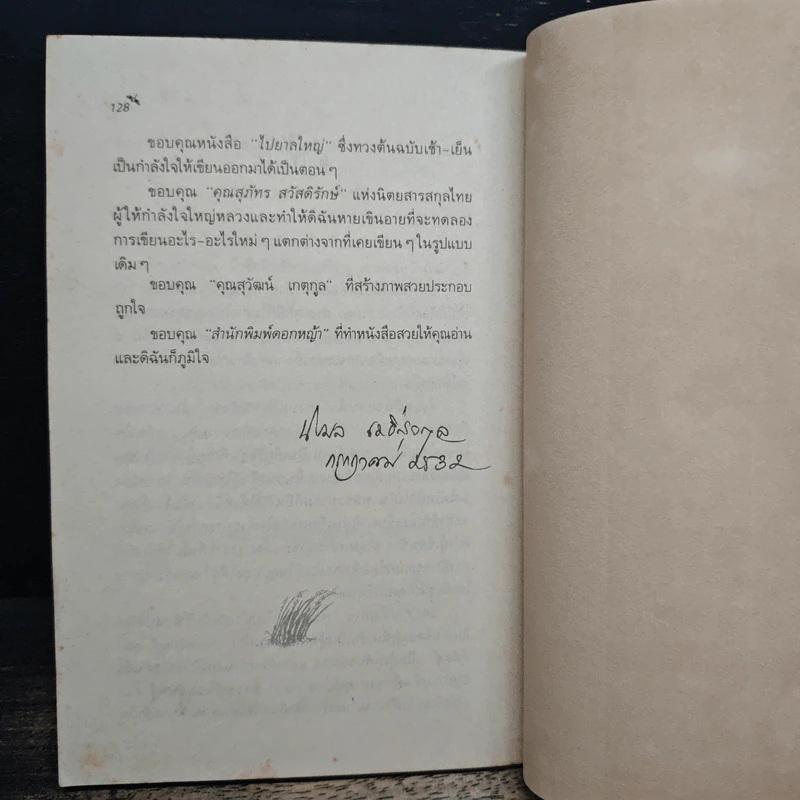 128
ขอบคุณหนังสือ "ไปยาลใหญ่" ซึ่งทวงต้นฉบับเช้า-เย็น
เป็นกำลังใจให้เขียนออกมาได้เป็นตอน ๆ
ขอบคุณ "คุณสุภัทร สวัสดิรักษ์" แห่งนิตยสารสกุลไทย
ผู้ให้กำลังใจใหญ่หลวงและทำให้ดิฉันหายเขินอายที่จะทดลอง
การเขียนอะไร-อะไรใหม่ ๆ แตกต่างจากที่เคยเขียน ๆ ในรูปแบบ
เดิม ๆ
ขอบคุณ "คุณสุวัฒน์ เกตุกูล" ที่สร้างภาพสวยประกอบ
ถูกใจ
ขอบคุณ "สำนักพิมพ์ดอกหญ้า" ที่ทำหนังสือสวยให้คุณอ่าน
และดิฉันก็ภูมิใจ
กรกฎาคม ๒๕๓๒